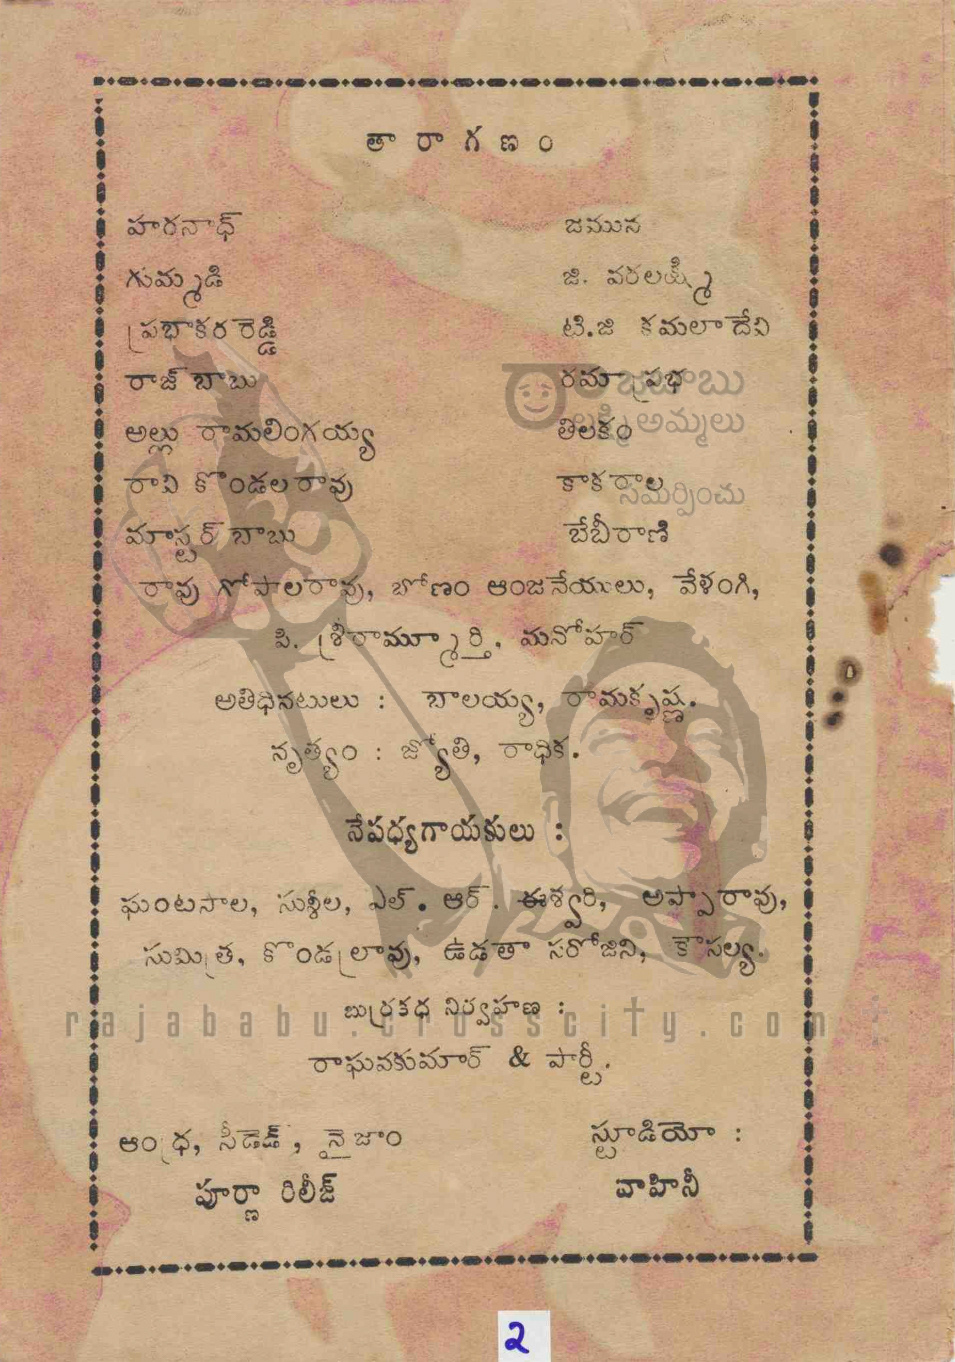 తారాగణం
హరనాధ్ జమున
గుమ్మడి జి. వరలక్ష్మి
ప్రభాకరరెడ్డి టి.జి కమలాదేవి
రాజ్ బాబు రమాప్రభ
అల్లు రామలింగయ్య తిలకం
రావి కొండలరావు కాకరాల
మాస్టర్ బాబు బేబీరాణి
రావు గోపాలరావు, బోణం ఆంజనేయులు, వేళంగి,
పి. శ్రీరామ్మూర్తి, మనోహర్
అతిధినటులు : బాలయ్య, రామకృష్ణ.
నృత్యం : జ్యోతి, రాధిక.
నేపధ్యగాయకులు :
ఘంటసాల, సుశీల, ఎల్. ఆర్. ఈశ్వరి, అప్పారావు,
సుమిత్ర, కొండ్రలావు, ఉడతా సరోజిని, కౌసల్య.
బుర్రకధ నిర్వహణ :
రాఘవకుమార్ & పార్టీ.
ఆంధ్ర, సీడెడ్, నైజాం స్టూడియో :
పూర్ణా రిలీజ్ వాహినీ
రాజబాబు
లక్ష్మిఅమ్మలు
సమర్పించు
rajababu.crosscity.com
2